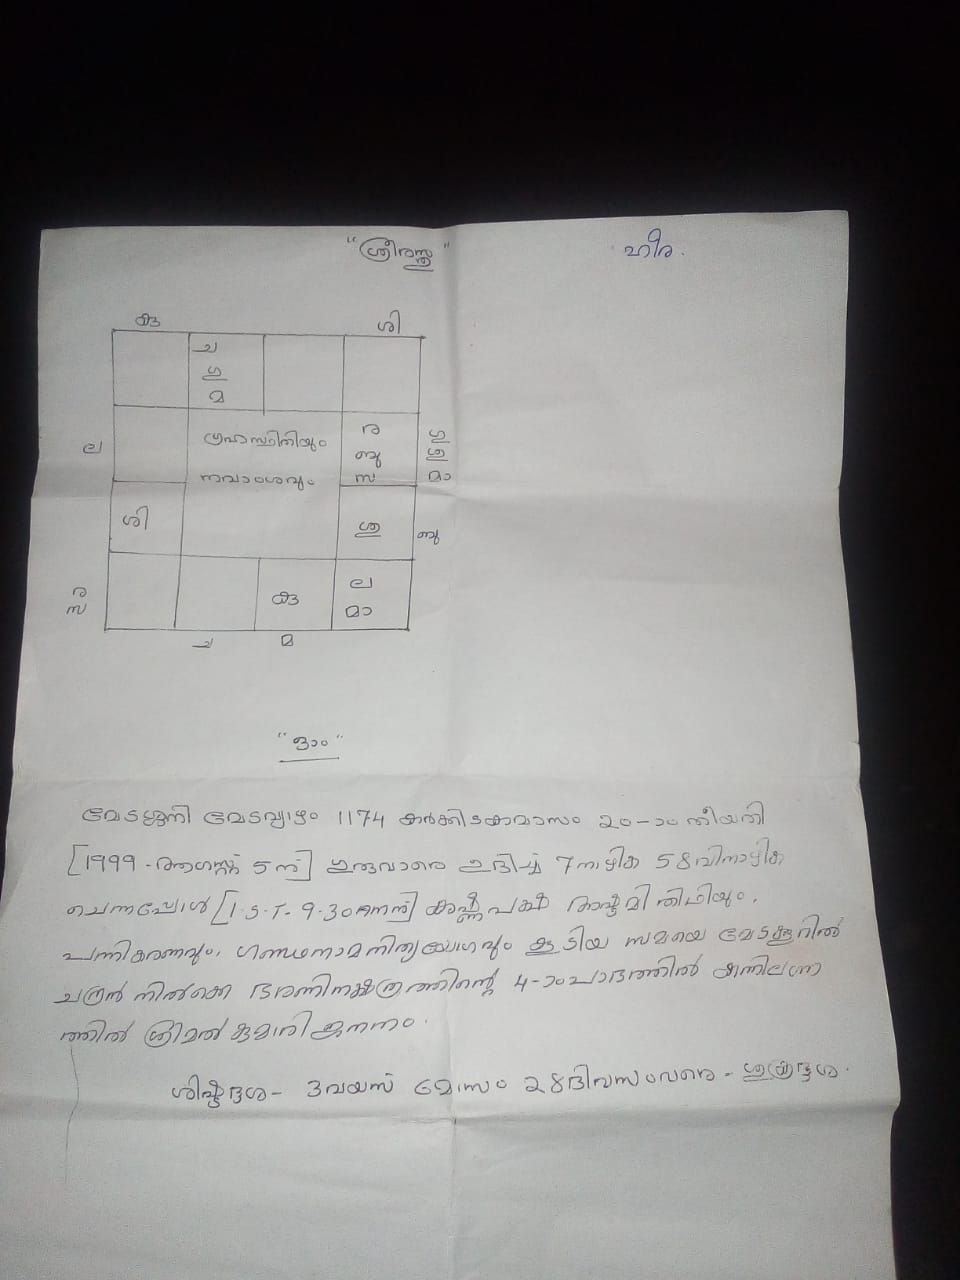 "ശ്രീരസ്തു"
ഹീര.
കു ശി
ച
ഗു
മ
ല ഗ്രഹസ്ഥിതിയും ര ഗു
നവാംശവും ബു ശു
സ മാ
ശി ശു ബു
ര ല
സ കു മാ
ച മ
"ഓം"
മേടമുനി മേടവ്യാഴം 1174 കർക്കിടകമാസം 20-ാം തീയതി
[1999 - ആഗസ്റ്റ് 5 ന്] ഗുരുവാരെ ഉദിച്ച് 7 നാഴിക 58 വിനാഴിക
ചെന്നപ്പോൾ [I.S.T. 9.30 AM ന്] കൃഷ്ണപക്ഷ അഷ്ടമി തിഥിയും,
പന്നികരണവും, ഗണ്ഡനാമനിത്യയോഗവും കൂടിയ സമയെ മേടക്കൂറിൽ
ചന്ദ്രൻ നിൽക്കെ ഭരണിനക്ഷത്രത്തിന്റെ 4-ാം പാദത്തിൽ കന്നിലഗ്ന
ത്തിൽ ശ്രീമൽ കുമാരി ജനനം.
ശിഷ്ടദശ - 3 വയസ് മാസം 28 ദിവസംവരെ - ശുക്രദശ.